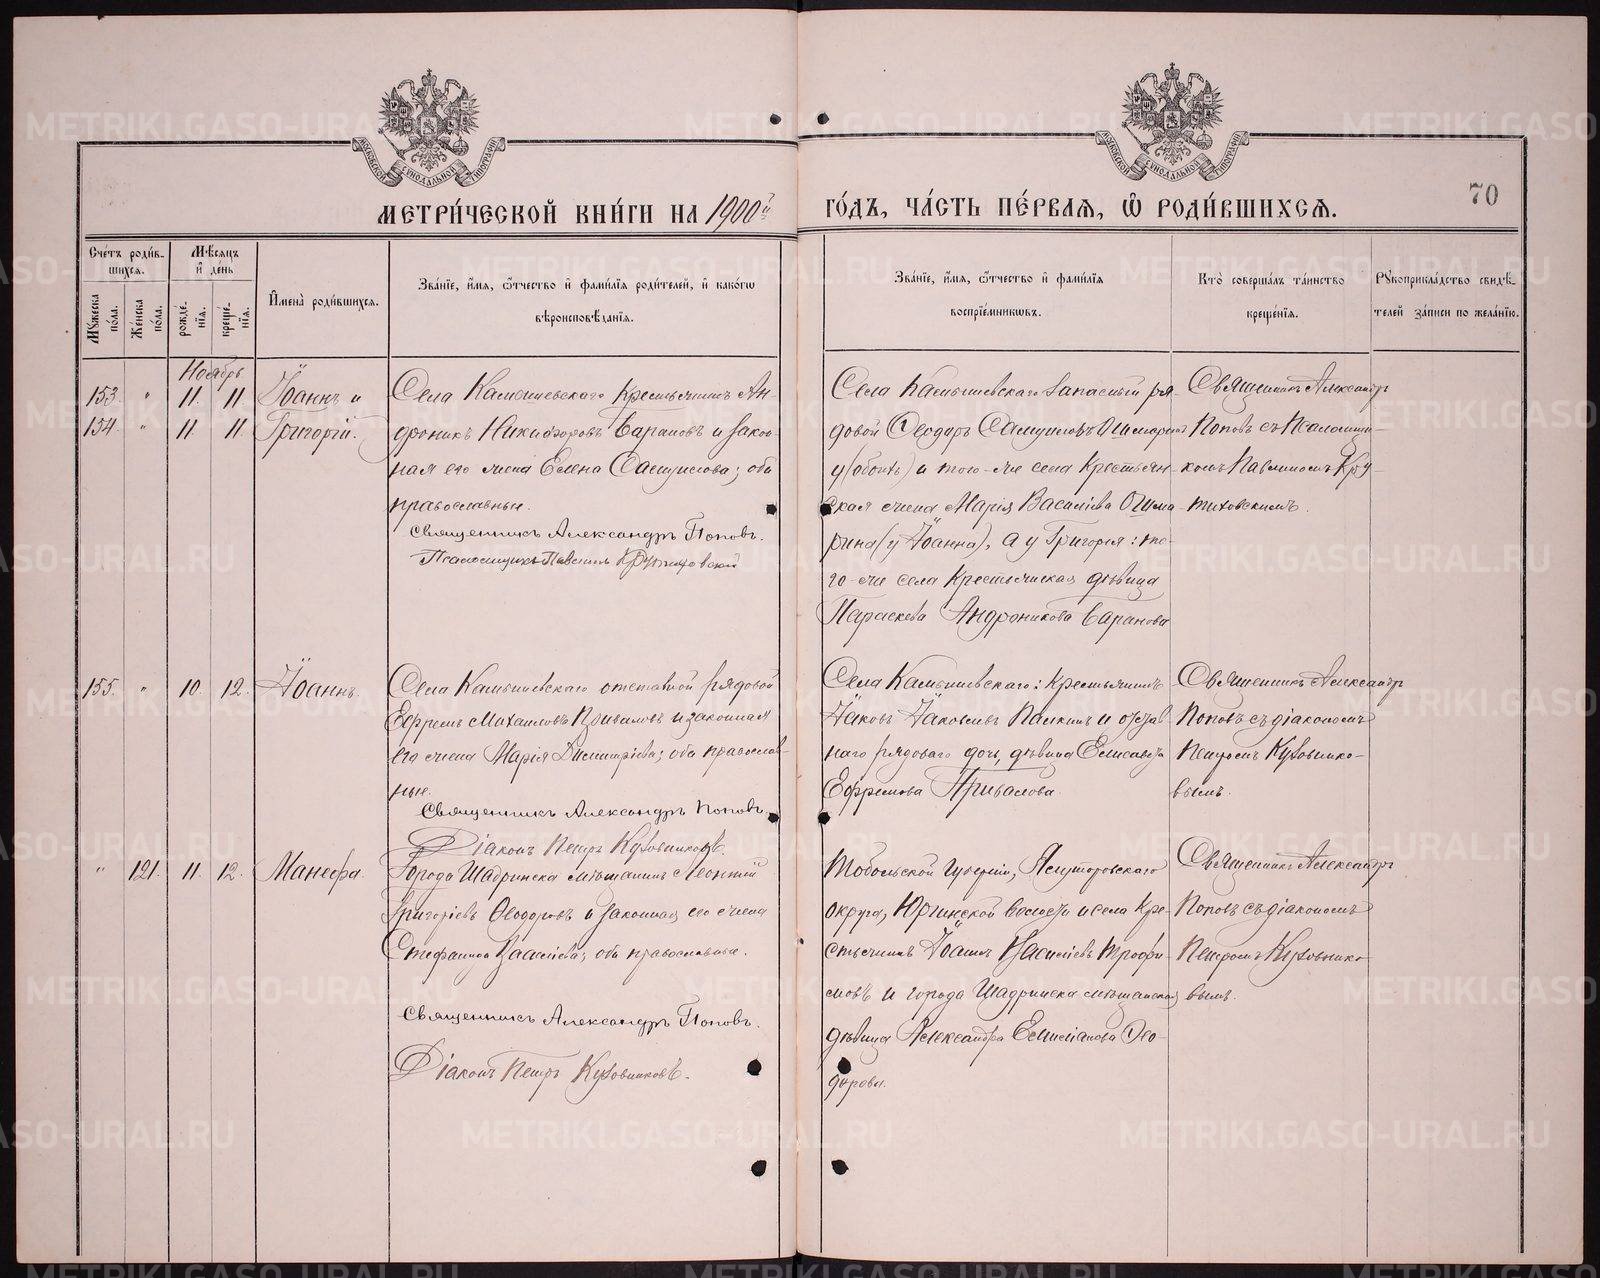 МЕТРИ́ЧЕСКОЙ КНИ́ГИ НА 1900й ГО́ДЪ, ЧА́СТЬ ПЕ́РВАЯ, Ѡ҆ РОДИ́ВШИХСЯ.
70
Сче́тъ роди́в-
шихся.
Мѣ́сяцъ
и҆ де́нь
Мꙋ́жеска
по́ла.
Же́нска
по́ла.
рожде́-
нїя.
креще́-
нїя.
И҆мена̀ роди́вшихся.
Зва́нїе, и҆́мя, ѻ҆́тчество и҆ фами́лїя роди́телей, и҆ како́гѡ
вѣроисповѣ́данїя.
Зва́нїе, и҆́мя, ѻ҆́тчество и҆ фами́лїя
воспрїе́мникѡвъ.
Кто̀ соверша́лъ та́инство
креще́нїя.
Рꙋкоприкла́дство свидѣ́-
телей за́писи по жела́нїю.
Ноябрь
153. " 11. 11 Іоаннъ и
154. " 11 11. Григорій.
Села Камышевскаго крестьянинъ Ан-
дроникъ Никифоровъ Барановъ и закон-
ная его жена Елена Самуилова; оба
православные.
Священникъ Александръ Поповъ.
Псаломщикъ Павлинъ Крутиховскій
Села Камышевскаго запасный ря-
довой Ѳеодоръ Самуиловъ Ошмаринъ
у (обоихъ) и того-же села крестьян-
ская жена Марія Василіева Ошма-
рина (у Іоанна), а у Григорія: то-
го-же села крестьянская дѣвица
Параскева Андроникова Баранова
Священникъ Александръ
Поповъ съ псаломщи-
комъ Павлиномъ Кру-
тиховскимъ.
155. " 10. 12. Іоаннъ.
Села Камышевскаго отставной рядовой
Ефремъ Михаиловъ Приваловъ и законная
его жена Марія Димитріева; оба православ-
ные.
Священникъ Александръ Поповъ.
Діаконъ Петръ Кузовниковъ.
Села Камышевскаго: крестьянинъ
Іаковъ Іаковлевъ Палкинъ и отстав
наго рядоваго дочь, дѣвица Елисавета
Ефремова Привалова.
Священникъ Александръ
Поповъ съ діакономъ
Петромъ Кузовнико-
вымъ.
" 121. 11. 12. Манефа.
Города Шадринска мѣщанинъ Леонтій
Григоріевъ Ѳеодоровъ и законная его жена
Стефанида Василіева; оба православные.
Священникъ Александръ Поповъ.
Діаконъ Петръ Кузовниковъ.
Тобольской губерніи, Ялуторовскаго
округа, Юргинской волости и села кре-
стьянинъ Іоаннъ Василіевъ Трофи-
мовъ и города Шадринска мѣщанская
дѣвица Александра Емиліанова Ѳео-
дорова.
Священникъ Александръ
Поповъ съ діакономъ
Петромъ Кузовнико-
вымъ.
METRIKI.GASO-URAL.RU